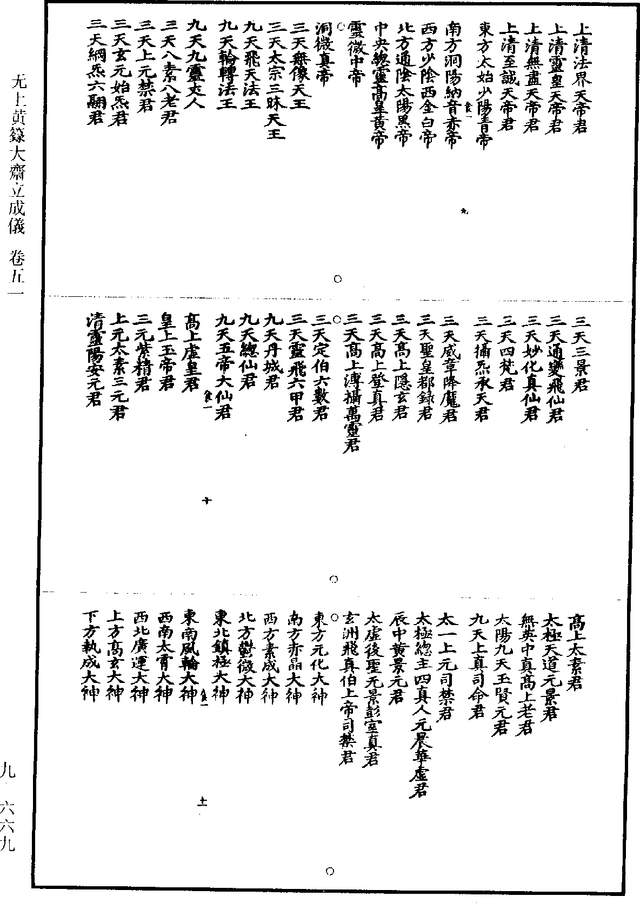 上清法界天帝君
上清靈皇天帝君
上清無盡天帝君
上清至誠天帝君
東方太始少陽青帝
南方洞陽納音赤帝
西方少陰西金白帝
北方通陰太陽黑帝
中央總靈高皇黃帝
靈微中帝
洞微真帝
三天無像天王
三天太宗三昧天王
九天飛天法王
九天輪轉法王
九天九靈丈人
三天八素八老君
三天上元禁君
三天玄元始炁君
三天綱炁六嗣君
九
三天三景君
三天通變飛仙君
三天妙化真仙君
三天四梵君
三天攝炁承天君
三天威章降魔君
三天聖皇都錄君
三天高上隱玄君
三天高上登真君
三天高上溥攝萬靈君
三天定伯六數君
三天靈飛六甲君
九天丹城君
九天總仙君
九天五帝大仙君
高上虛皇君
皇上玉帝君
三元紫精君
上元太素三元君
清靈陽安元君
十
高上太素君
太極天道元景君
無英中真高上老君
太陽九天玉賢元君
九天上真司命君
太一上元司禁君
太極總主四真人元晨華虛君
辰中黃景元君
太虛後聖元景彭室真君
玄洲飛真伯上帝司禁君
東方元化大神
南方赤晶大神
西方素成大神
北方鬱微大神
東北鎮極大神
東南風輪大神
西南太霄大神
西北廣運大神
上方高玄大神
下方執成大神
十一
无上黃籙大齋立成儀 卷五一
九 六六九